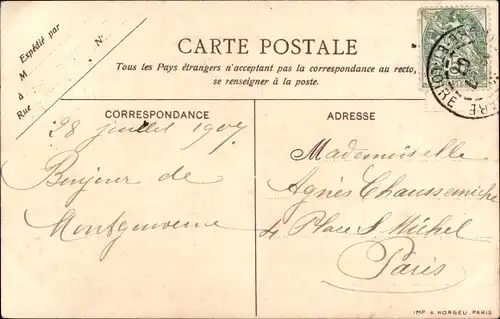 Expédié par
M
à
Rue
N°
CARTE POSTALE
Tous les Pays étrangers n'acceptant pas la correspondance au recto,
se renseigner à la poste.
CORRESPONDANCE
28 juillet 1907
Bonjour de
Montgouverne
ADRESSE
Mademoiselle
Agnès
4 Place S Michel
Paris
IMP A. NORGEU, PARIS